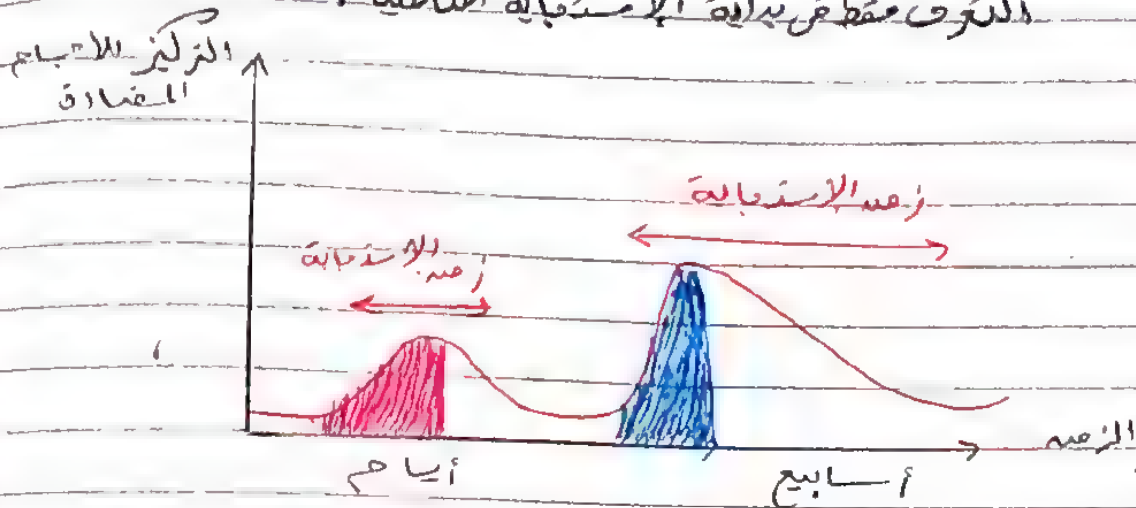 التعرف فقط في بداية الإستجابة المناعية .
التركيز للأجسام
المضادة
زمن الإستجابة
زمن الإستجابة
الزمن
أيام
أسابيع